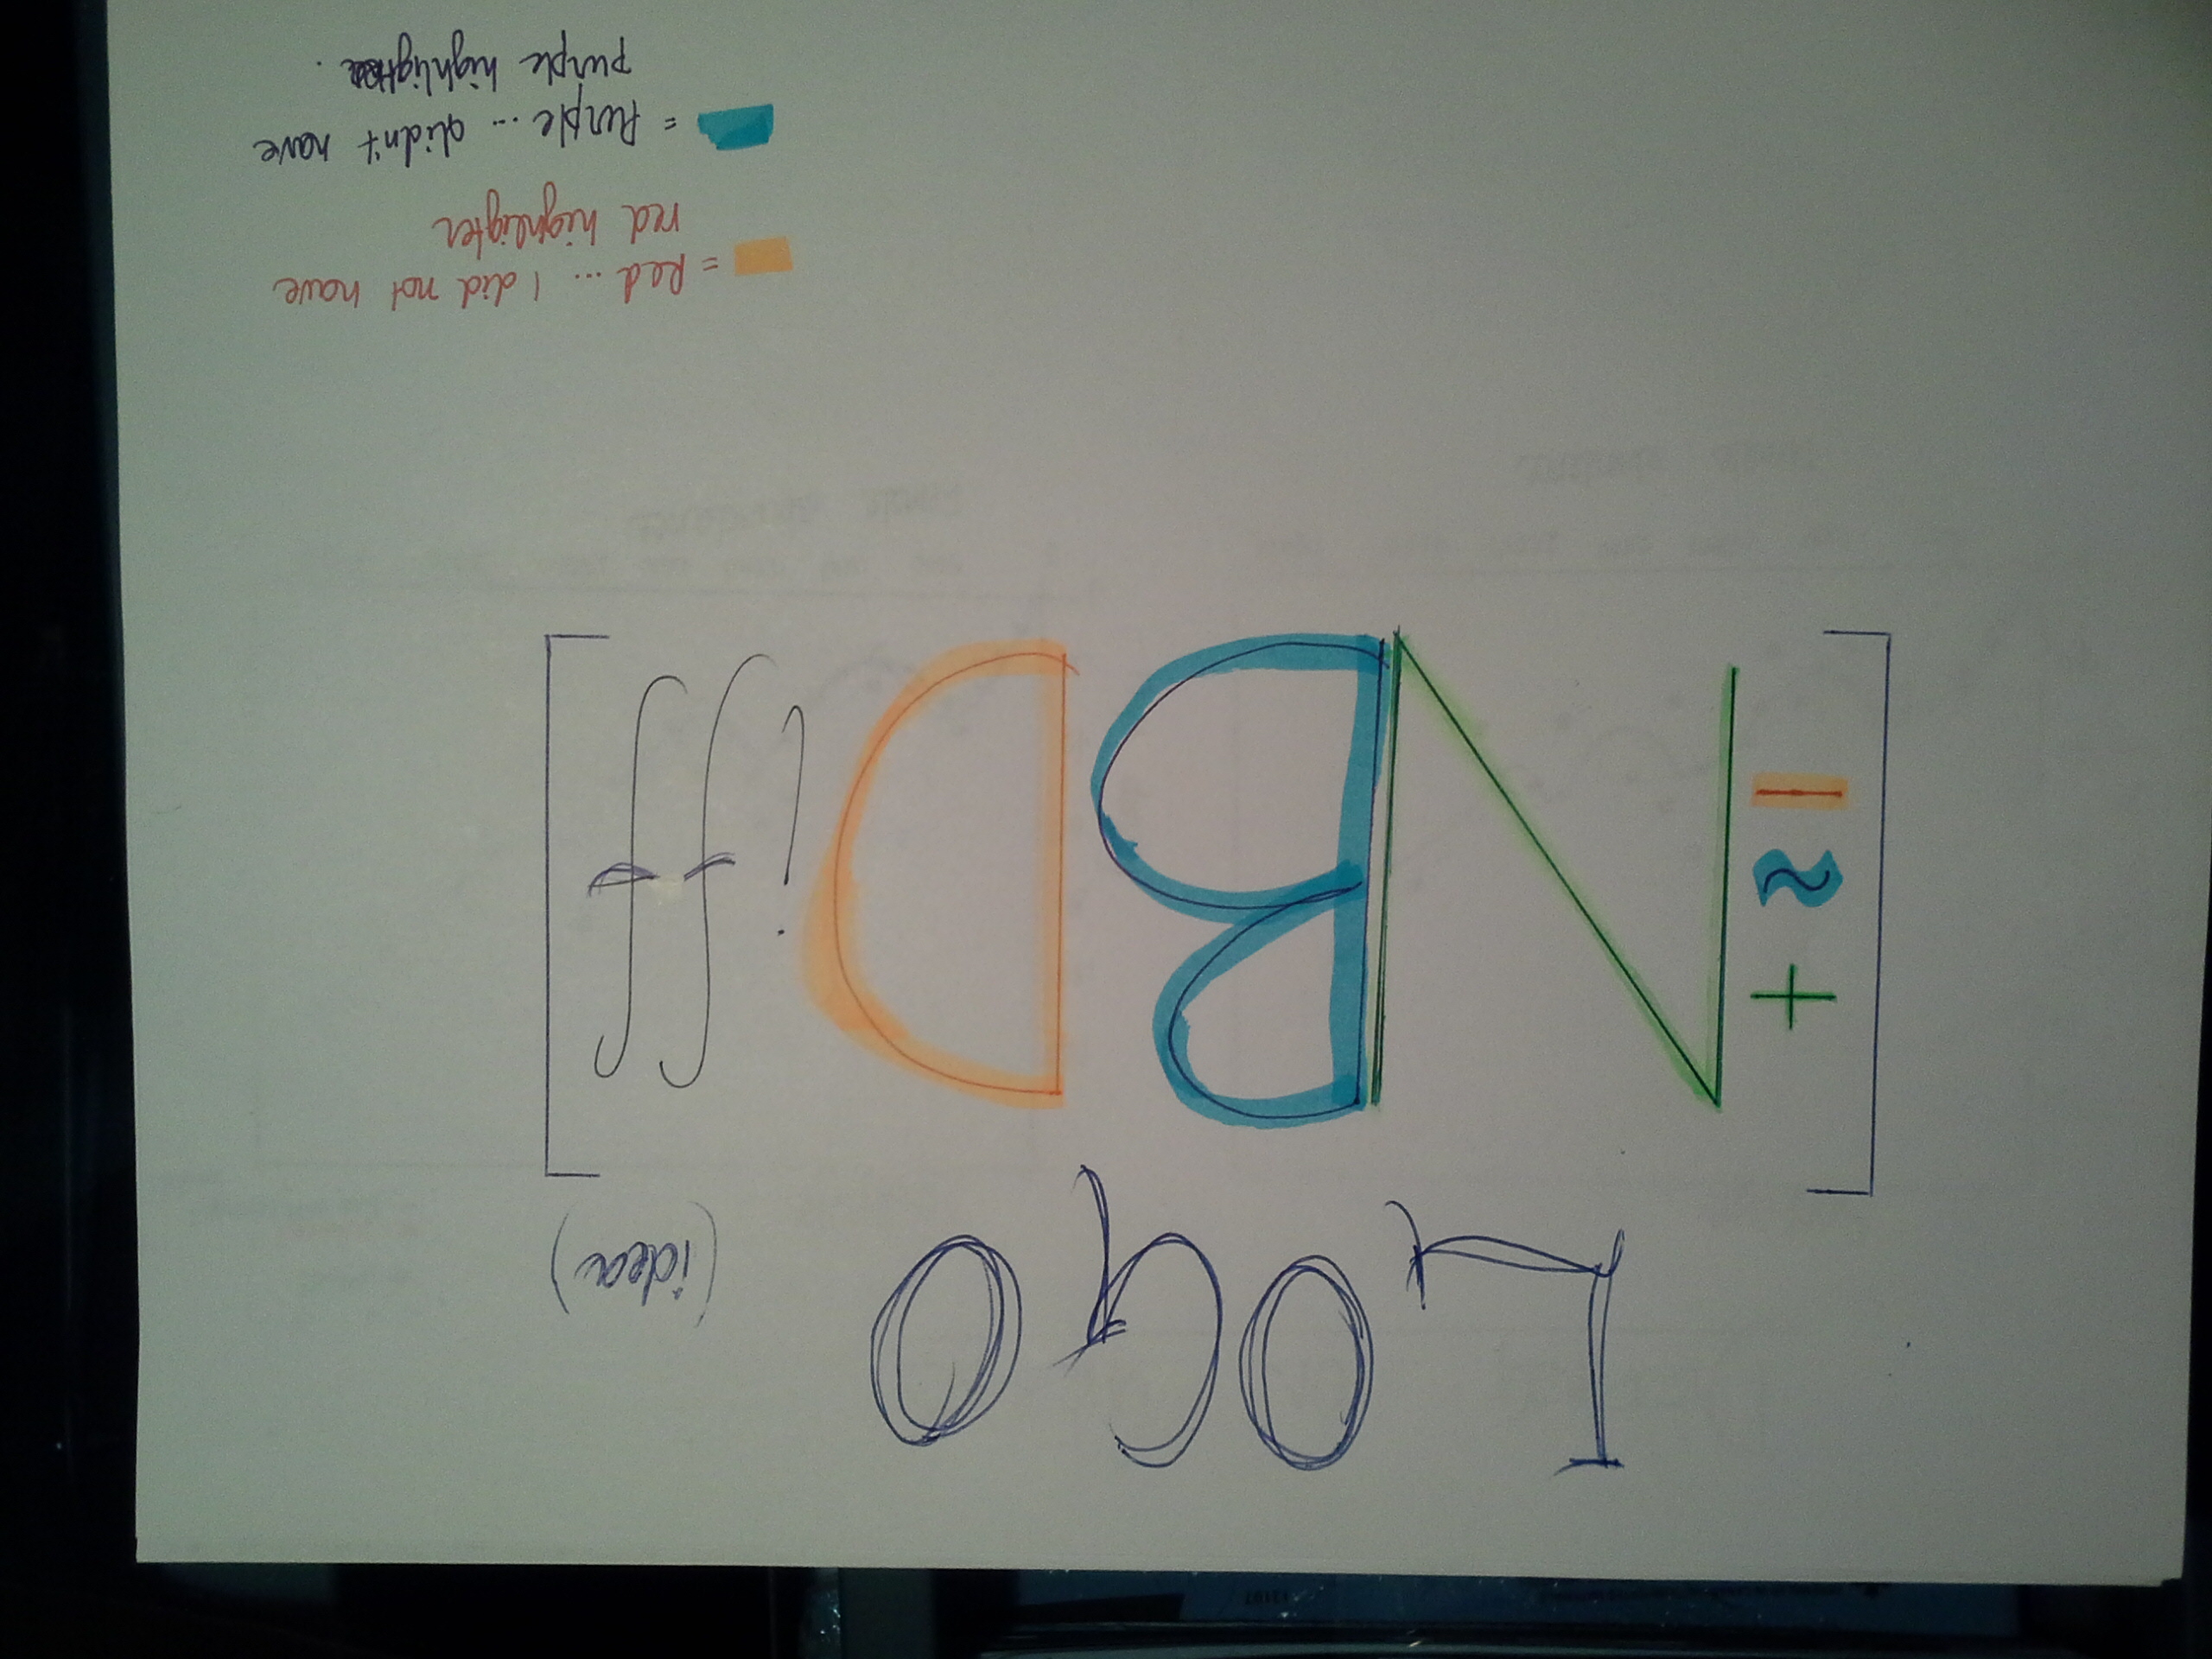 LOGO (idea)
[ + ~ - NBDiff ]
= Red... I did not have
red highligter
= Purple... didn't have
purple highligter.